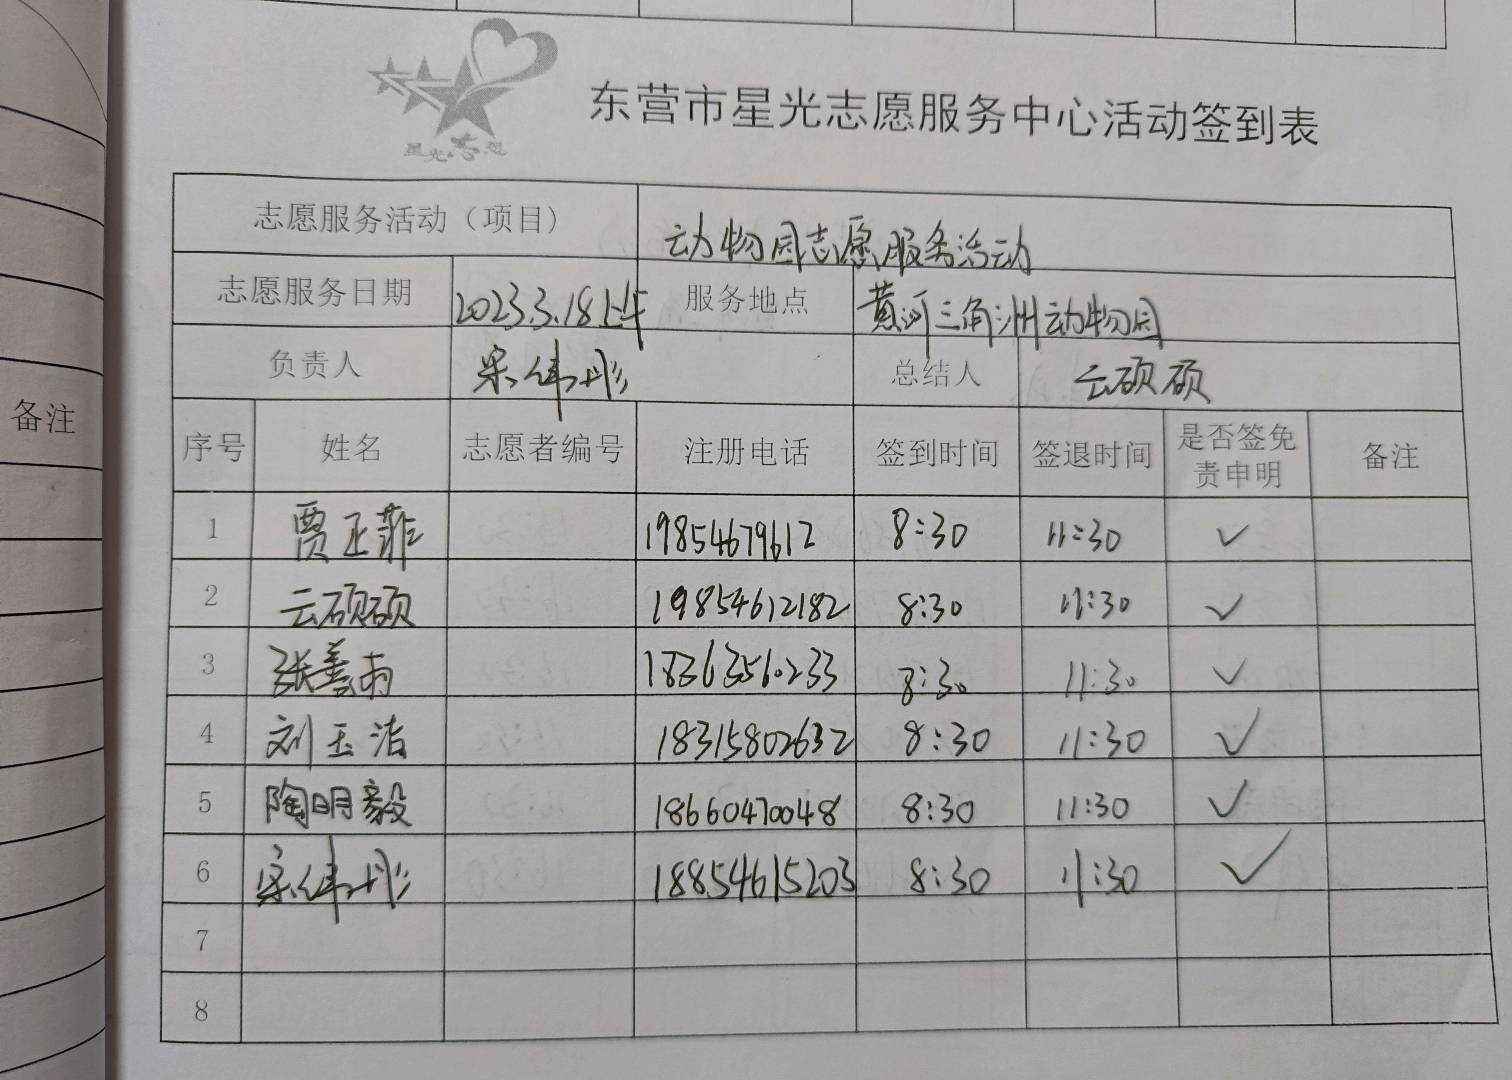 备注
星光志愿
东营市星光志愿服务中心活动签到表
志愿服务活动（项目） 动物园志愿服务活动
志愿服务日期 2023.3.18上午 服务地点 黄河三角洲动物园
负责人 宋伟彤 总结人 云硕硕
序号 姓名 志愿者编号 注册电话 签到时间 签退时间 是否签免责申明 备注
1 贾正菲 19854679612 8:30 11:30 ✓
2 云硕硕 19854612182 8:30 11:30 ✓
3 张善雨 18363560233 8:30 11:30 ✓
4 刘玉洁 18315802632 8:30 11:30 ✓
5 陶明毅 18660470048 8:30 11:30 ✓
6 宋伟彤 18854615203 8:30 11:30 ✓
7
8